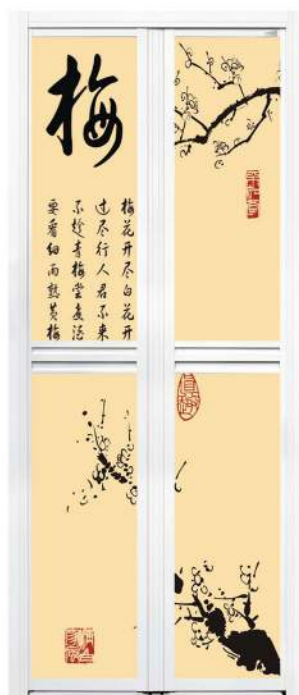 梅
梅花开尽白花开
过尽行人君不来
不趁青梅尝煮酒
要看细雨熟黄梅